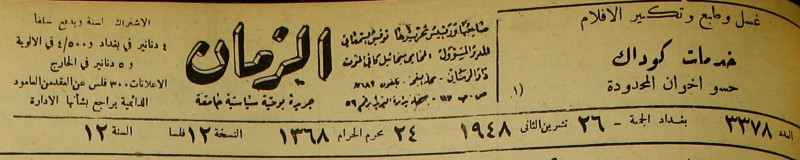 غسل وطبع وتكبير الافلام
خدمات كوداك
حسو اخوان المحدودة
(١
صاحبها ورئيس تحريرها توفيق السمعاني
المدير المسؤول: المحامي
الزمان
جريدة يومية سياسية جامعة
الاشتراك لسنة ويدفع سلفاً
٤ دنانير في بغداد و٤/٥٠٠ في الالوية
و٥ دنانير في الخارج
الاعلانات ٣٠٠ فلس عن العقد من العامود
الدائمية يراجع بشأنها الادارة
العدد ٣٣٧٨ بغداد الجمعة - ٢٦ تشرين الثانى ١٩٤٨ ٢٤ محرم الحرام ١٣٦٨ النسخة ١٢ فلسا السنة ١٢